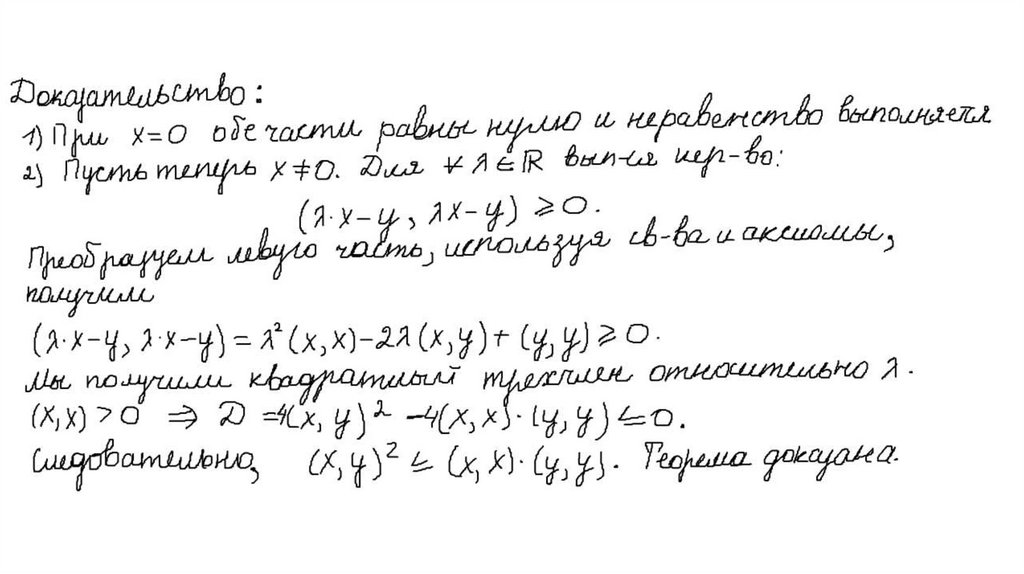 Доказательство:
1) При x=0 обе части равны нулю и неравенство выполняется
2) Пусть теперь x≠0. Для ∀ λ∈ℝ вып-ся нер-во:
(λ·x-y, λx-y) ⩾0.
Преобразуем левую часть, используя св-ва и аксиомы,
получим
(λ·x-y, λ·x-y) = λ²(x,x)-2λ(x,y)+(y,y)⩾0.
Мы получили квадратный трехчлен относительно λ.
(x,x)>0 ⇒ D =4(x,y)² -4(x,x)·(y,y)⩽0.
Следовательно, (x,y)² ⩽ (x,x)·(y,y). Теорема доказана.